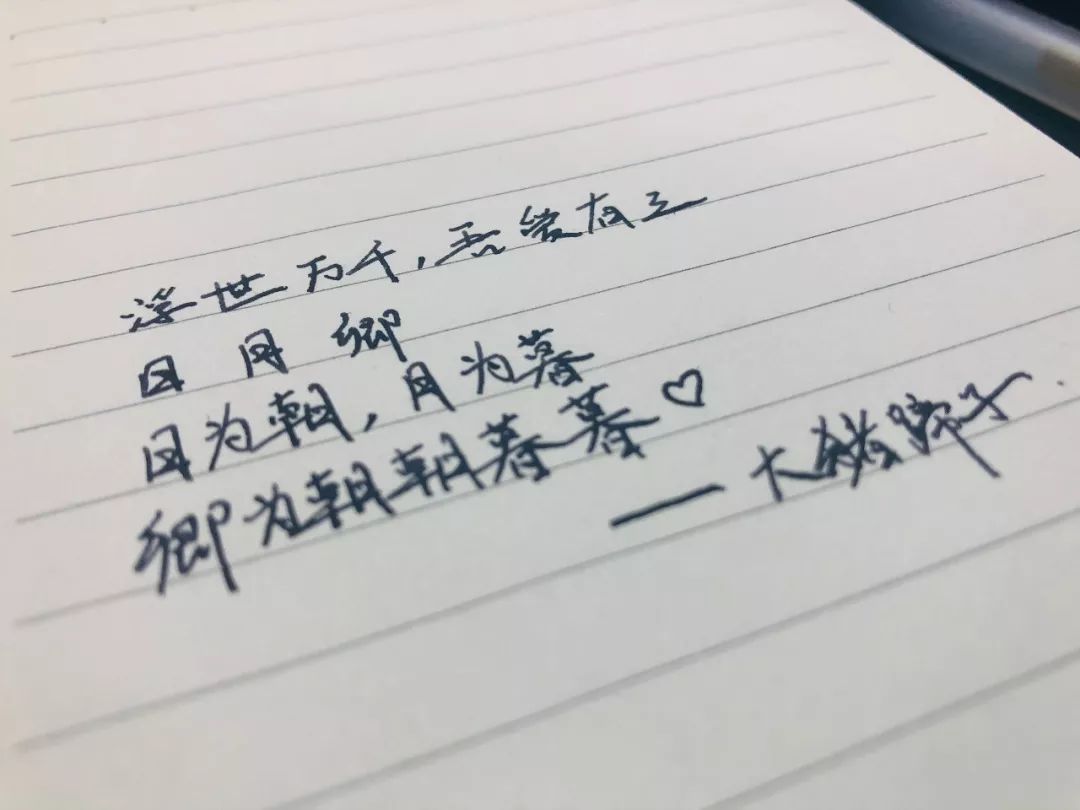 浮世万千，吾爱有三
日月卿
日为朝，月为暮
卿为朝朝暮暮♡
——大